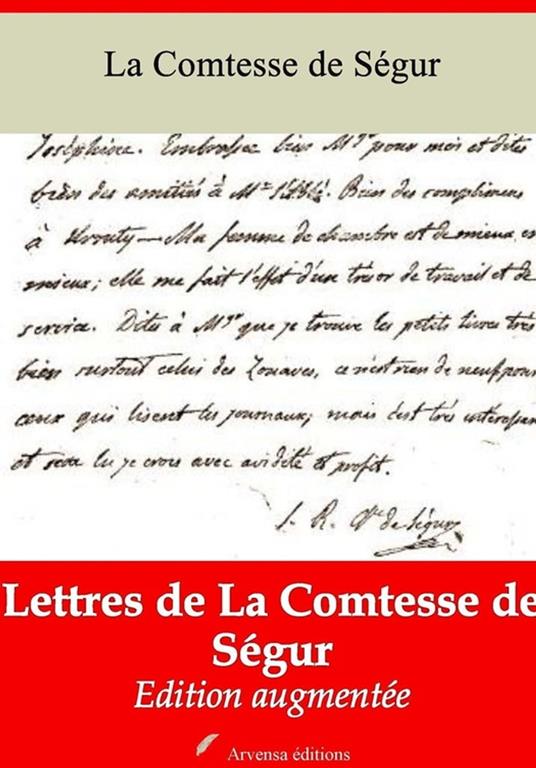 La Comtesse de Ségur
Joséphine. Embrassez bien Mgr pour moi et dites
bien des amitiés à Mr l'abbé. Bien des complimens
à Ma femme de chambre est de mieux en
mieux; elle me fait l'effet d'un trésor de travail et de
service. Dites à Mgr que je trouve les petits livres très
bien surtout celui des Zouaves, ce n'est rien de neuf pour
ceux qui lisent les journaux; mais c'est très intéressant
et sera lu je crois avec avidité et profit.
S. R. Ctsse de Ségur
Lettres de La Comtesse de
Ségur
Edition augmentée
Arvensa éditions